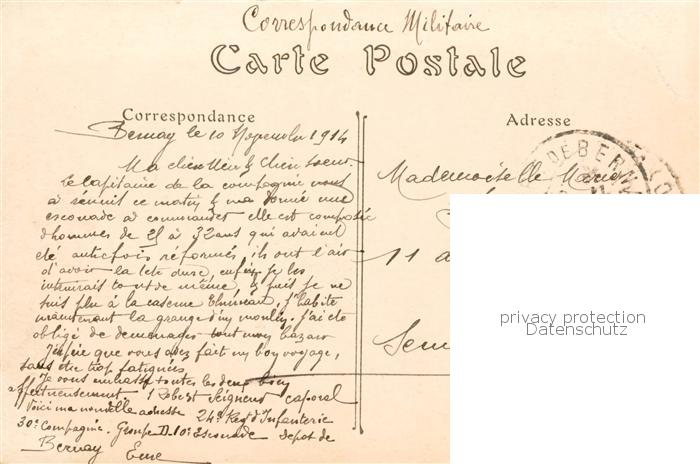 Correspondance Militaire
Carte Postale
Correspondance
Adresse
Bernay le 10 1914
Ma chère
Le capitaine de la compagnie nous
a réunis ce matin & m'a donné une
escouade a commander elle est composée
d'hommes de 25 à 32 ans qui avaient
été autrefois réformés, ils ont l'air
d'avoir la tete dure, enfin je les
tout de même, & puis je ne
suis plu à la caserne j'habite
maintenant la grange d'un moulin. j'ai été
obligé de demenager tout mon bazar
J'espère que vous avez fait un bon voyage,
sans etre trop fatiguées
Je vous embrasse toutes les deux bien
affectueusement Robert Seigneur caporal
Voici ma nouvelle adresse 24e Regt d'Infanterie
30e Compagnie. Groupe D. 10e Escouade depot de
Bernay Eure
Mademoiselle Marie
11
DE BERNA
privacy protection
Datenschutz